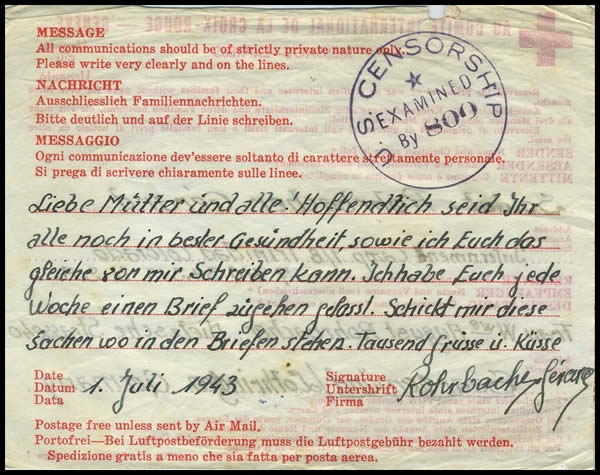 MESSAGE
All communications should be of strictly private nature only.
Please write very clearly and on the lines.
NACHRICHT
Ausschliesslich Familiennachrichten.
Bitte deutlich und auf der Linie schreiben.
MESSAGGIO
Ogni communicazione dev'essere soltanto di carattere strettamente personale.
Si prega di scrivere chiaramente sulle linee.
US CENSORSHIP
EXAMINED
By 809
Liebe Mütter und alle! Hoffendlich seid Ihr
alle noch in bester Gesündheit, sowie ich Euch das
gleiche von mir Schreiben kann. Ich habe Euch jede
Woche einen Brief zügehen gelasst. Schickt mir diese
sachen wo in den Briefen stehen. Tausend Grüsse ü. Küsse
Date
Datum 1. Juli 1943
Data
Signature
Untershrift Rohrbacher Gérard
Firma
Postage free unless sent by Air Mail.
Portofrei—Bei Luftpostbeförderung muss die Luftpostgebühr bezahlt werden.
Spedizione gratis a meno che sia fatta per posta aerea.